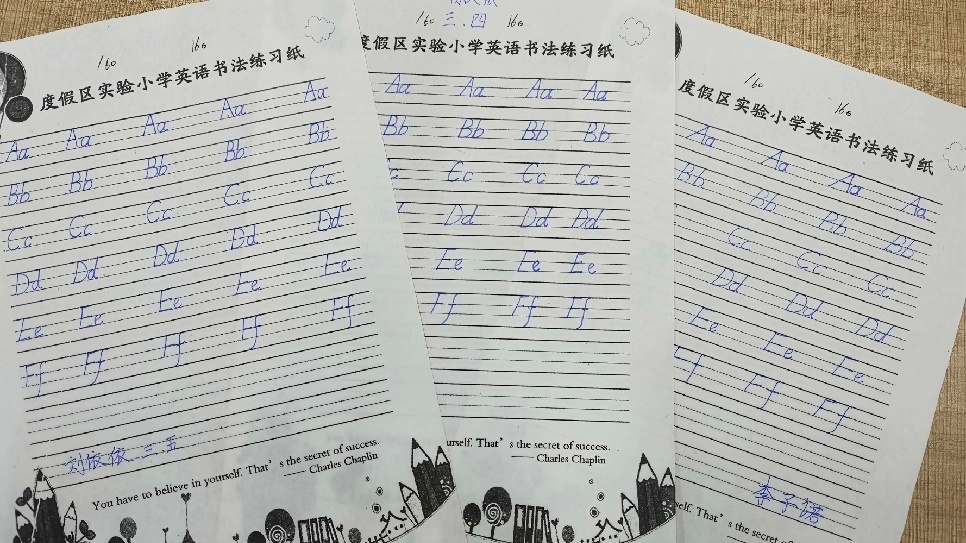 160 160
度假区实验小学英语书法练习纸
Aa Aa Aa Aa Aa
Bb Bb Bb Bb Bb
Cc Cc Cc Cc Cc
Dd Dd Dd Dd Dd
Ee Ee Ee Ee Ee
Ff Ff Ff Ff Ff
刘依依 三.五
You have to believe in yourself. That's the secret of success.
—— Charles Chaplin
160 三.四 160
度假区实验小学英语书法练习纸
Aa Aa Aa Aa
Bb Bb Bb Bb
Cc Cc Cc
Dd Dd Dd
Ee Ee Ee
Ff Ff Ff
urself. That's the secret of success.
—— Charles Chaplin
160 160
度假区实验小学英语书法练习纸
Aa Aa Aa Aa
Bb Bb Bb Bb
Cc Cc Cc
Dd Dd Dd
Ee Ee Ee
Ff Ff Ff
李子诺
rself. That's the secret of